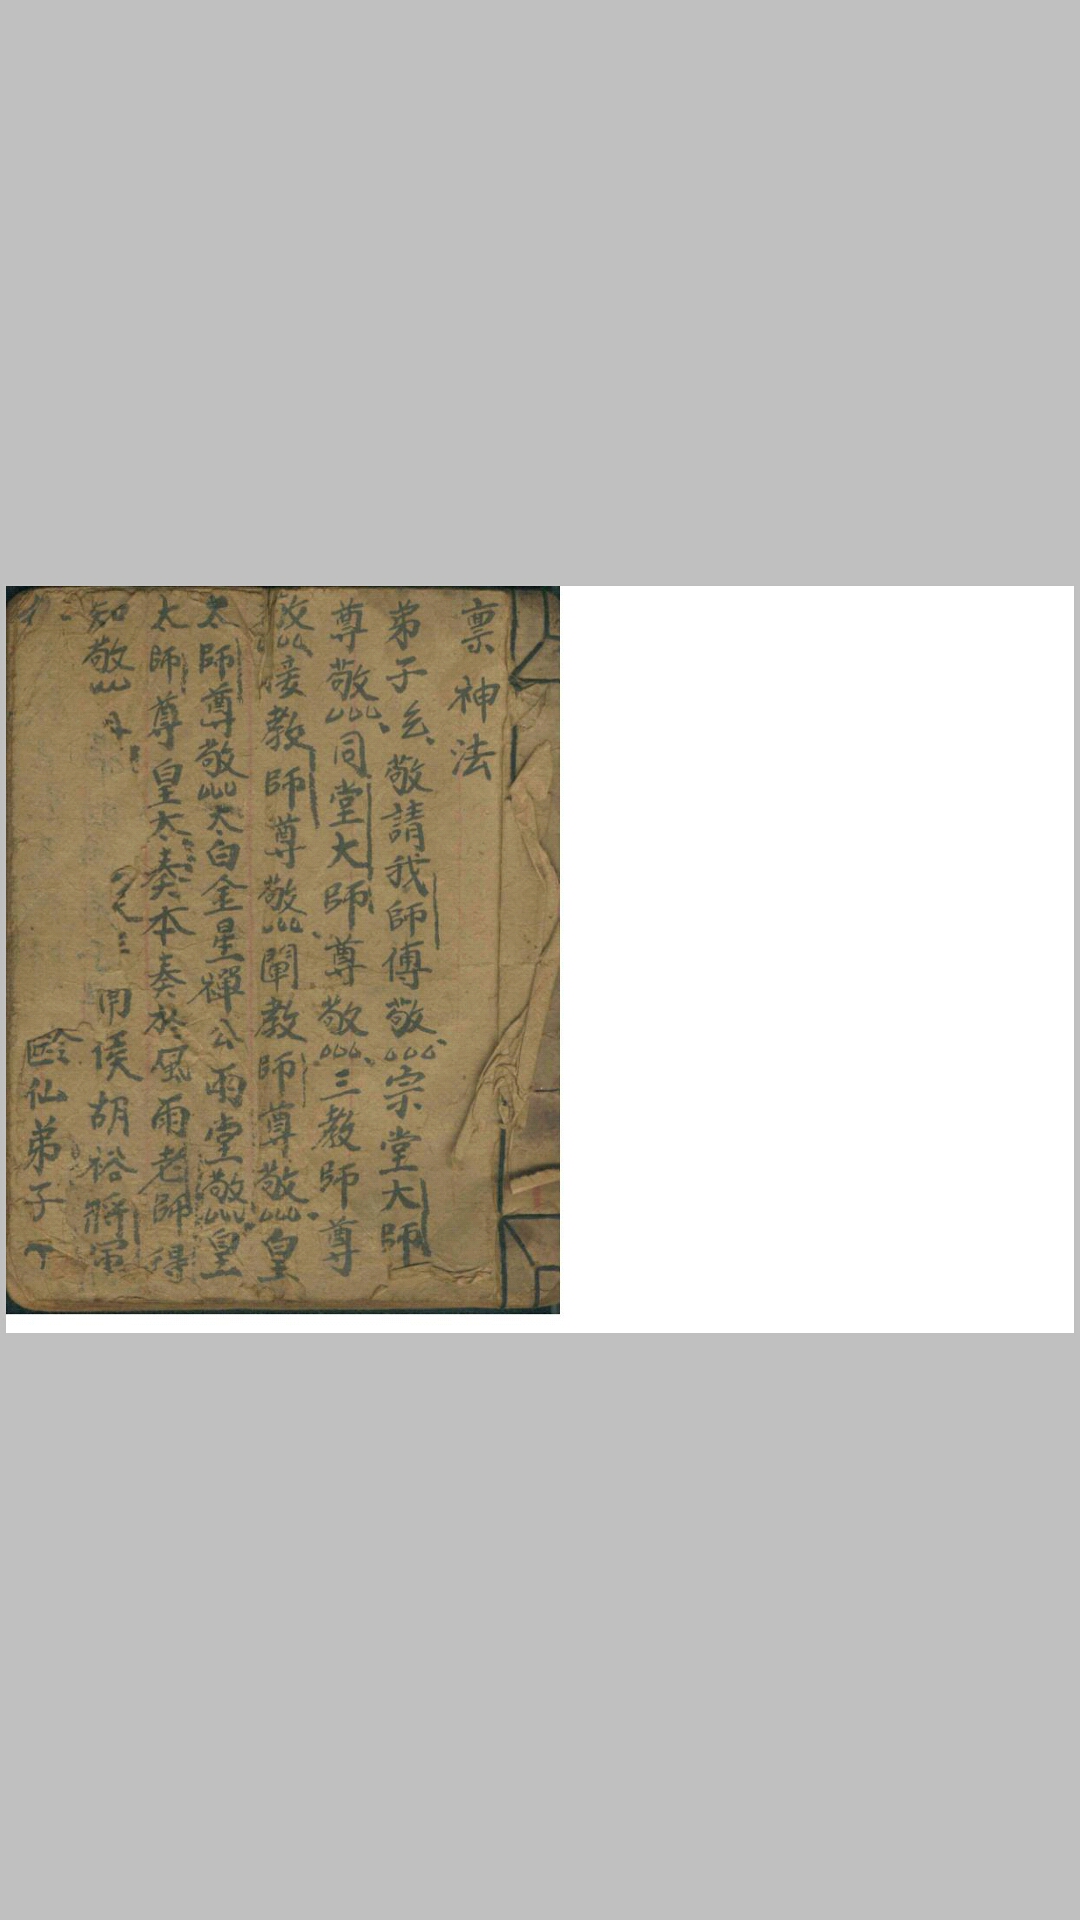 禀神法
弟子 敬請我師傅敬 宗堂大師
尊敬 同堂大師尊敬 三教師尊
接教師尊敬 闡教師尊敬 皇
太師尊敬 太白金星禪公雨堂敬 皇
太師尊皇太奏本奏於風雨老師得
知敬 胡裕將軍
仙弟子